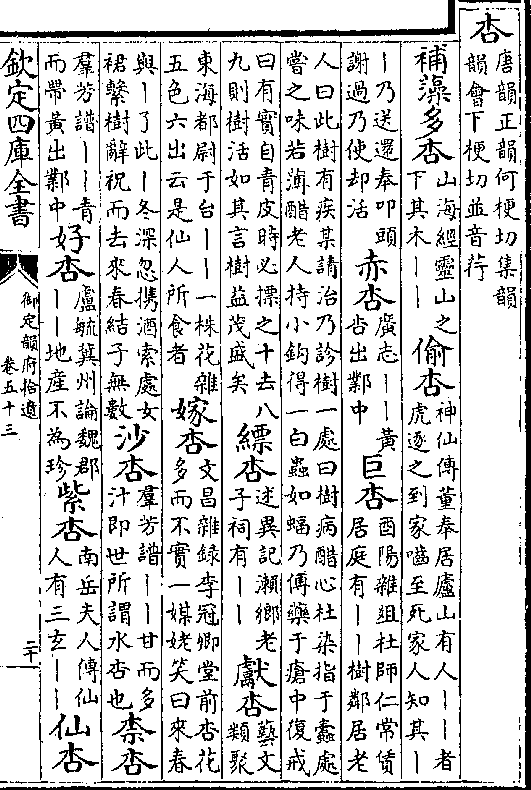 杏
唐韻正韻何梗切集韻
韻會下梗切並音荇
補藻多杏
山海經靈山之
下其木丨丨
偷杏
神仙傳董奉居廬山有人丨丨者
虎逐之到家嚙至死家人知其丨
丨乃送還奉叩頭
謝過乃使却活
赤杏
廣志丨丨黃
杏出鄴中
巨杏
酉陽雜組杜師仁常賃
居庭有丨丨樹鄰居老
人曰此樹有疾某請治乃診樹一處曰樹病醋心杜染指于蠹處
嘗之味若薄醋老人持小鈎得一白蟲如蝠乃傅藥于瘡中復戒
曰有實自青皮時必摽之十去八
九則樹活如其言樹益茂盛矣
縹杏
述異記瀬鄉老
子祠有丨丨
獻杏
藝文
類聚
東海都尉于台丨丨一株花雜
五色六出云是仙人所食者
嫁杏
文昌雜録李冠卿堂前杏花
多而不實一媒姥笑曰來春
與丨了此丨冬深忽携酒索處女
裙繫樹辭祝而去來春結子無數
沙杏
羣芳譜丨丨甘而多
汁即世所謂水杏也
柰杏
羣芳譜丨丨青
而帶黃出鄴中
好杏
盧毓冀州論魏郡
丨丨地産不為珍
紫杏
南岳夫人傳仙
人有三玄丨丨
仙杏
欽定四庫全書
御定韻府拾遺
卷五十三
二十